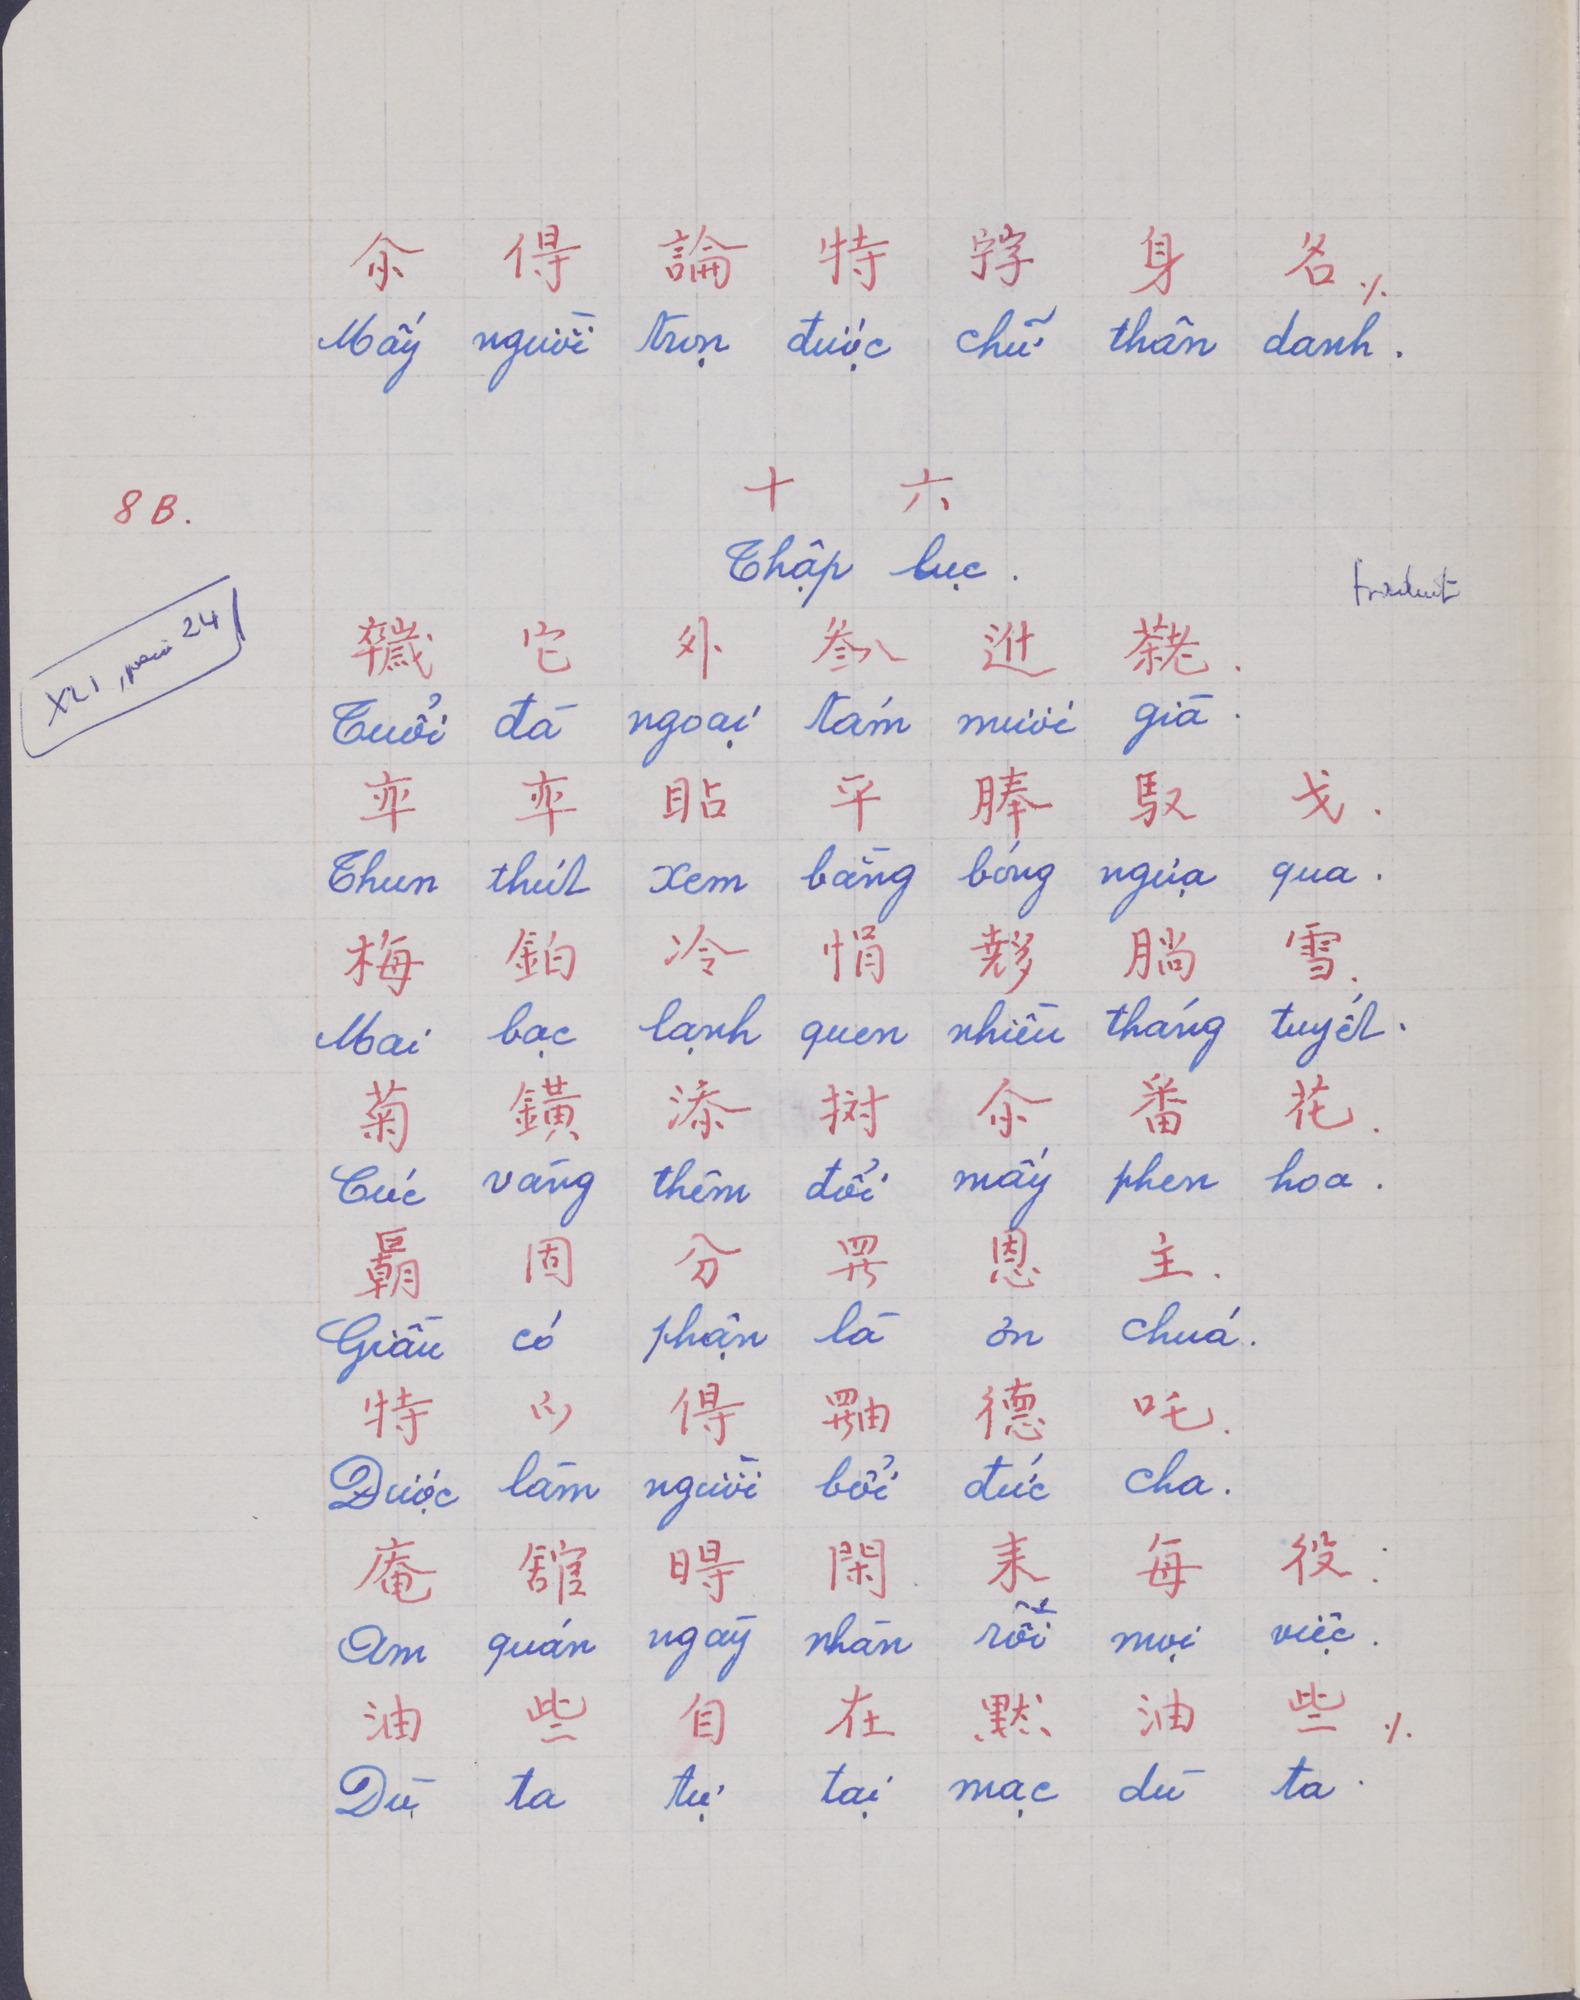 尒 得 論 特 𡨸 身 名 ٪
Mấy người trọn được chữ thân danh.
十 六
8B.
Thập lục.
traduit
XLI,
24
它 外 𠔭 𨑮 𦓅.
Tuổi đã ngoại tám mươi già.
卒 卒 貼 平 䏾 馭 戈.
Thun thút xem bằng bóng ngựa qua.
梅 鉑 冷 悁 𡗉 𣎃 雪.
Mai bạc lạnh quen nhiều tháng tuyết.
菊 鐄 添 𢬗 尒 番 花.
Cúc vàng thêm đổi mấy phen hoa.
固 分 𱺵 恩 主.
Giầu có phận là ơn chuá.
特 𫜵 得 德 吒.
Được làm người bởi đức cha.
庵 舘 𣈜 閑 耒 每 役:
Am quán ngày nhàn rỗi mọi việc.
油 些 自 在 默 油 些 ٪
Dù ta tự tại mạc dù ta.